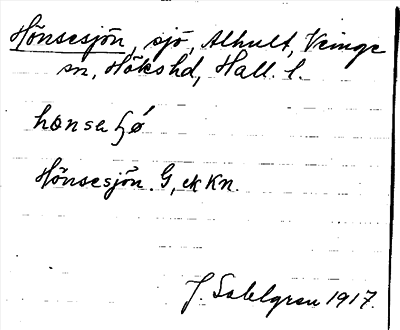 Hönsesjön, sjö, Alhult, Veinge
sn, Höks hd, Hall. l.
hönsa
Hönsesjön. G, ek Kn.
J. Sahlgren 1917.